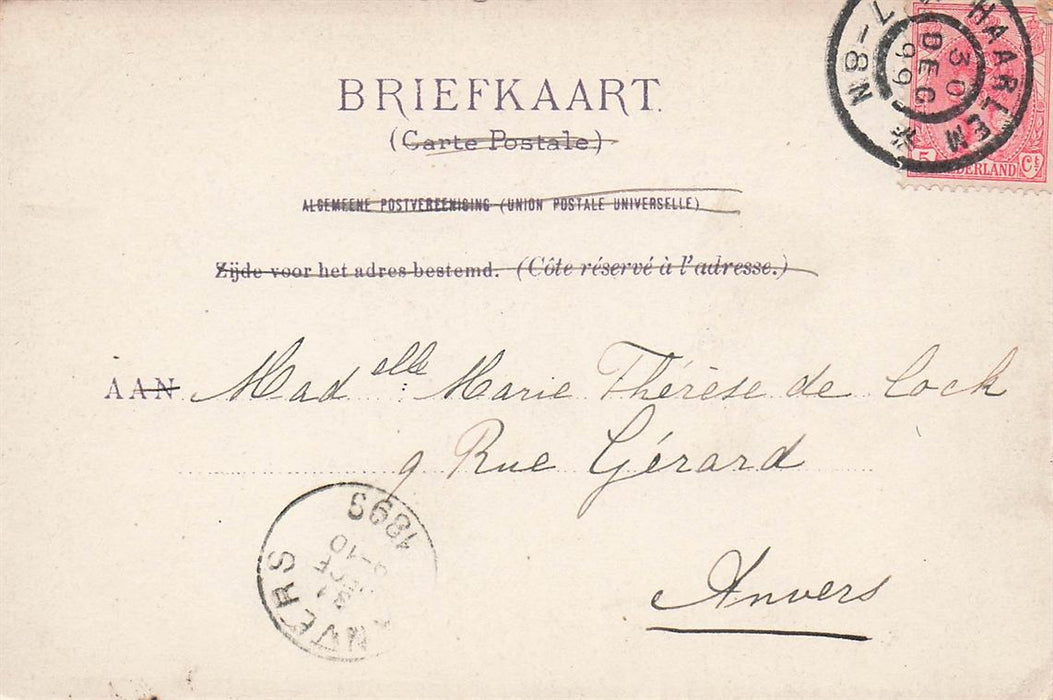 HAARLEM
30
DEC
99
7-8N
5 Ct
NEDERLAND
BRIEFKAART.
(Carte Postale)
ALGEMEENE POSTVEREENIGING (UNION POSTALE UNIVERSELLE)
Zijde voor het adres bestemd. (Côte réservé à l'adresse.)
AAN Madelle Marie Thérèse de Cock
9 Rue Gérard
Anvers
ANVERS
31
10
1899